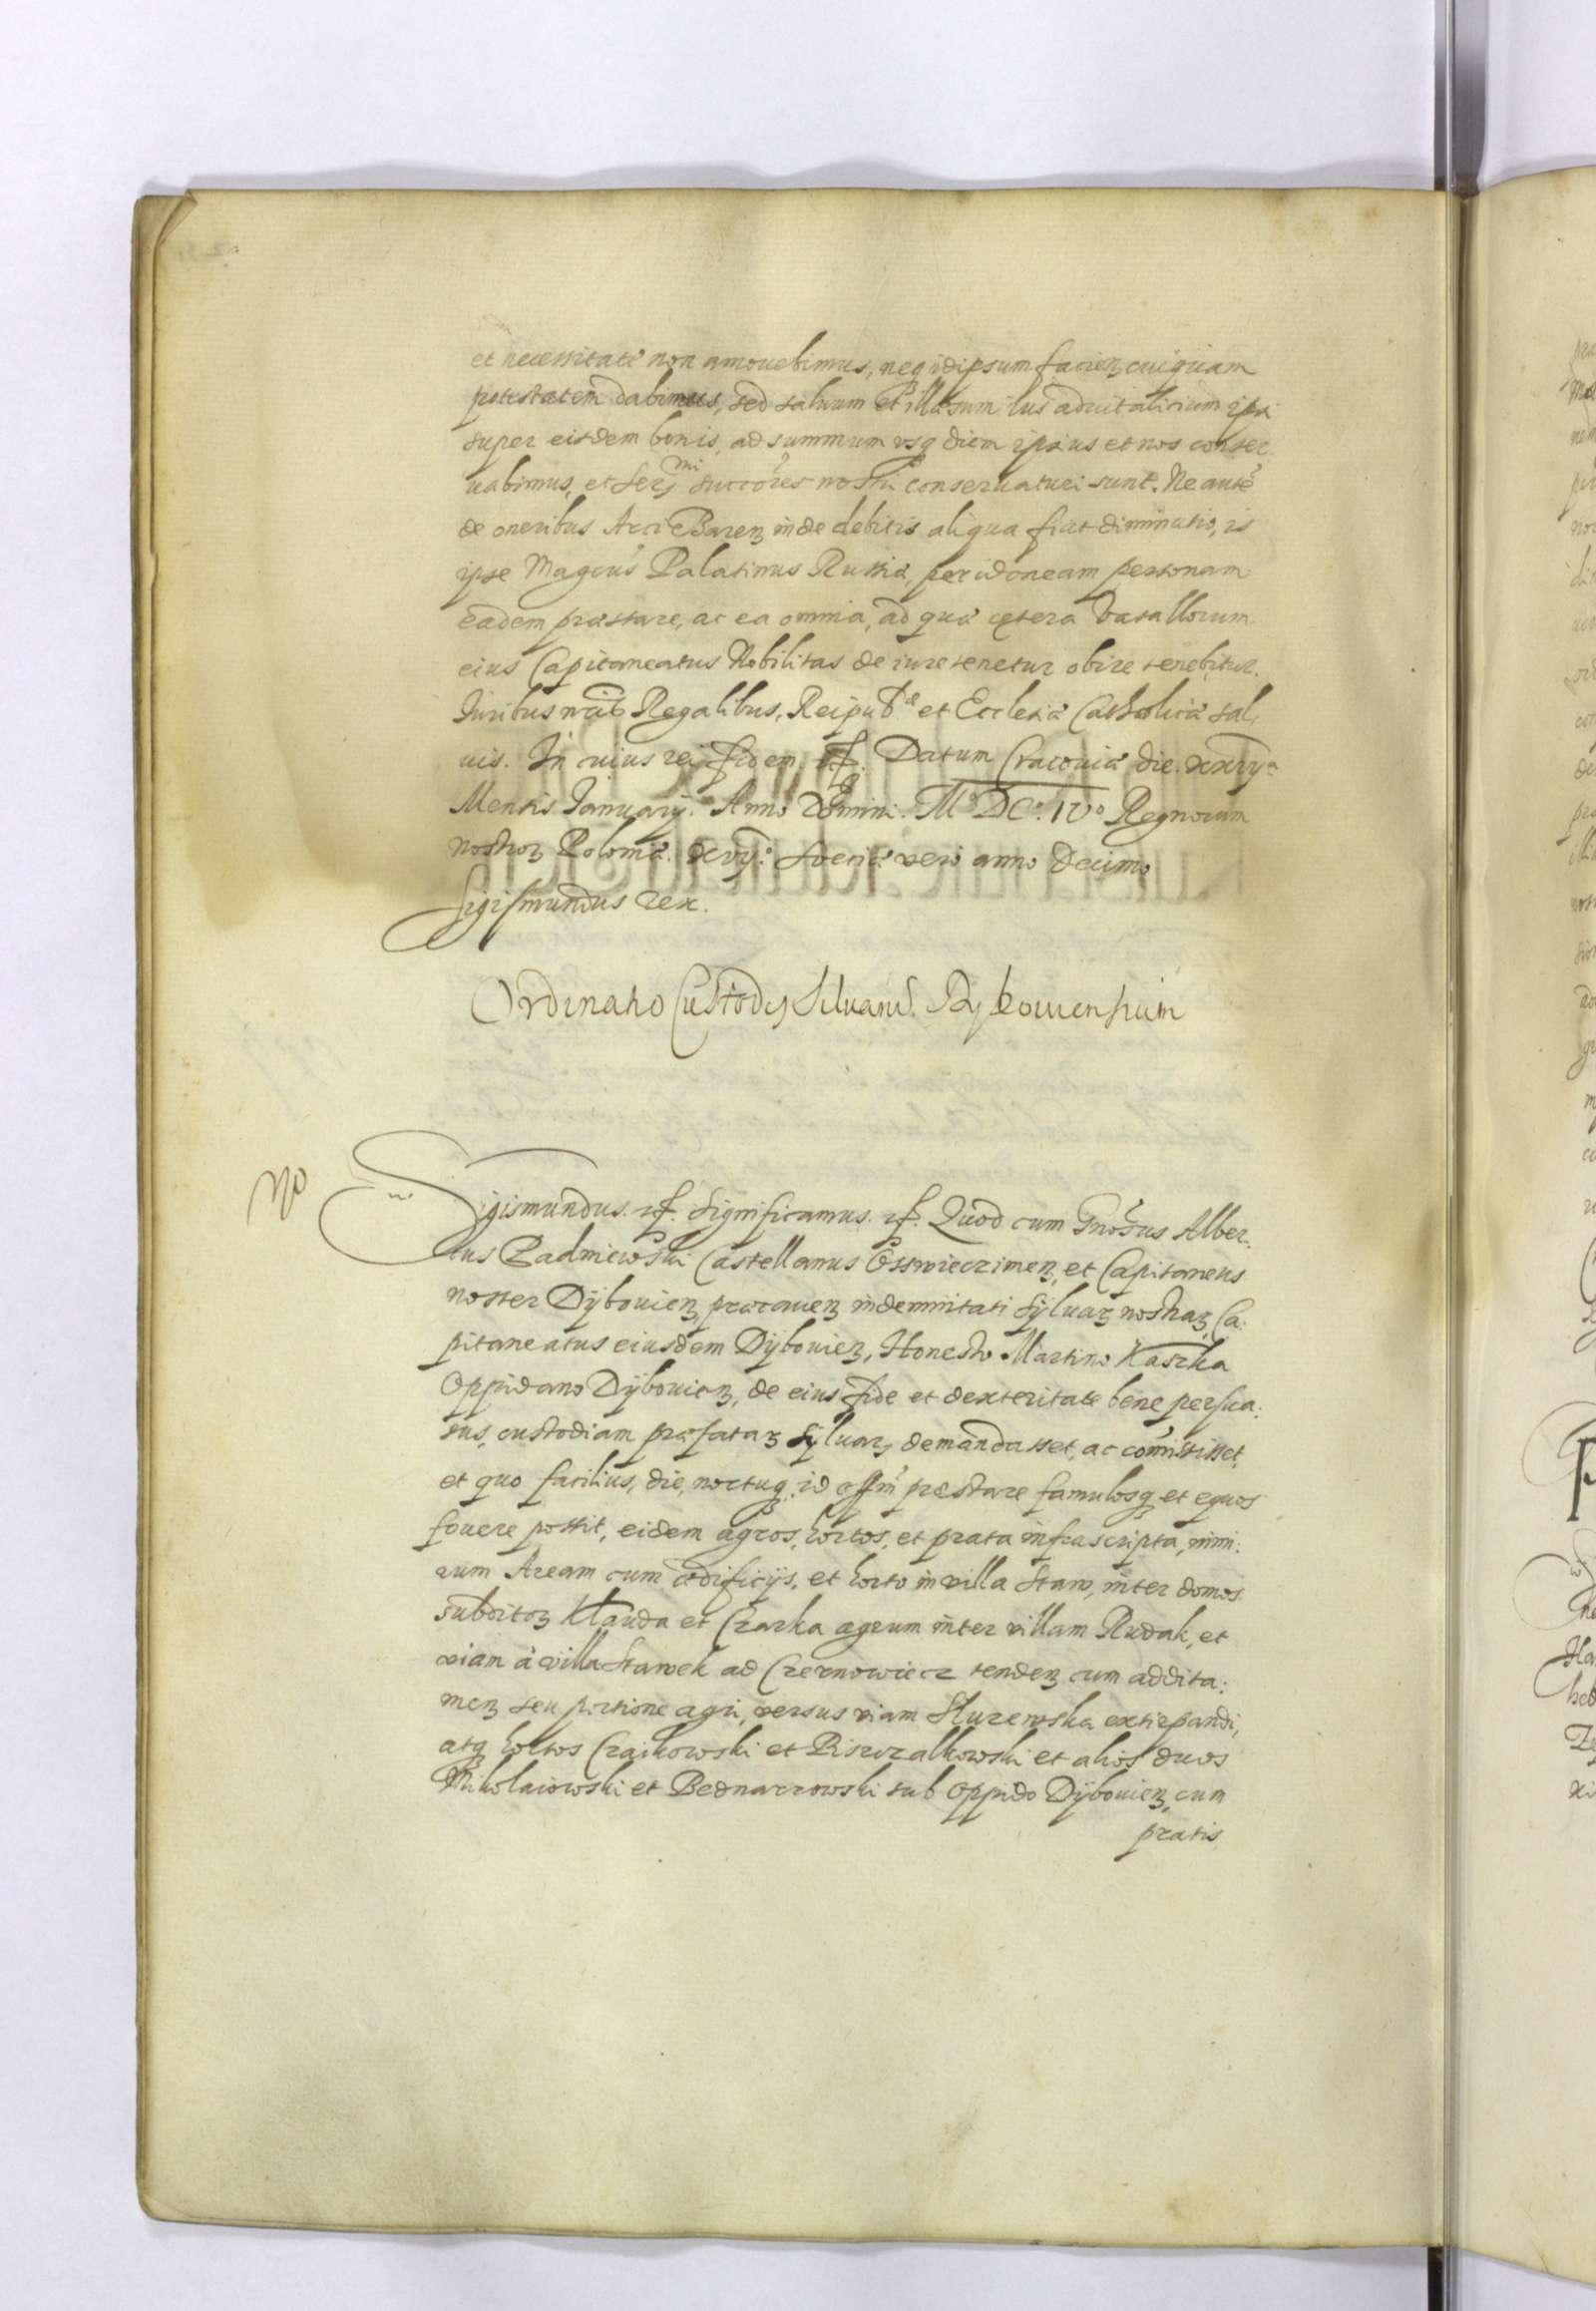 et necessitate non amouebimus, neq idipsum facien cuiquam
potestatem dabimus, sed saluum et illæsum ius aduitalitium ipsi
super eisdem bonis, ad summum vsq diem ipsius et nos conser:
uabimus, et Sermi succōres nostri conseruaturi sunt. Ne autē
de oneribus Arci Baren inde debitis aliqua fiat diminutio, is
ipse Magcus Palatinus Russiæ, per idoneam personam
eadem præstare, ac ea omnia, ad quæ cętera Vasallorum
eius Capitaneatus Nobilitas de iure tenetur obire tenebitur.
Iuribus nris Regalibus, Reipub. et Ecclesiæ Catholicæ sal:
uis. In cuius rei fidem etc. Datum Cracouiæ die xxvij
Mensis Ianuarij. Anno Domini. Mo DCo. IVo Regnorum
nostror Poloniæ xvijo Sueciæ vero anno decimo
Sigismundus Rex.
Ordinatio Custodis Siluarum Dybouiensium
No
Sigismundus etc. Significamus etc. Quod cum Gnosus Alber:
tus Padniewski Castellanus Osswieczimen, et Capitaneus
noster Dÿbouien, præcauen indemnitati sÿluar nostrar, Ca:
pitaneatus eiusdem Dÿbouien, Honesto Martino Kaszka
Oppidano Dÿbouien, de eius fide et dexteritate bene persua:
sus, custodiam præfatar sÿluar, demandasset, ac comisisset,
et quo facilius, die, noctuq id offm præstare famulosq et equos
fouere possit, eidem agros, hortos, et prata infrascripta, nimi:
rum Aream cum ædificijs, et horto in villa Staw, inter domos
subditor Klauda et Czarka agrum inter villam Rudak, et
viam à villa Stawek ad Czernowiecz tenden cum addita:
men seu portione agri, versus viam Sluzewska extirpandi,
atq hortos Czaikowski et Piszczalkowski et alios duos
Mikolaiowski et Bednarzowski sub oppido Dÿbouien, cum
pratis,